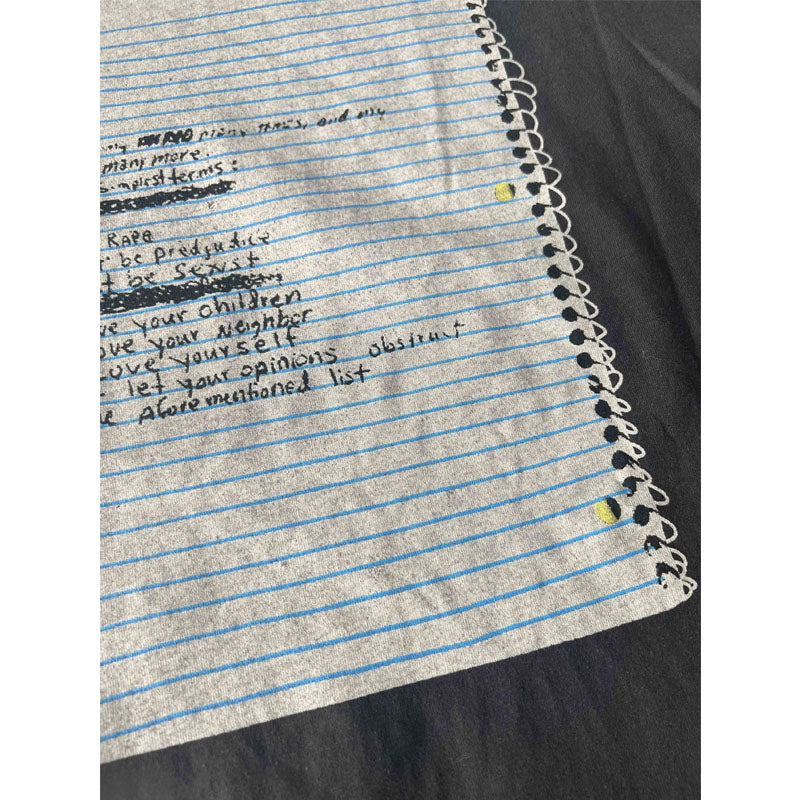 many times, and
many more.
terms:
Rape
be predjudice
be Sexist
your children
your Neighbor
Love yourself
let your opinions obstruct
Aforementioned list